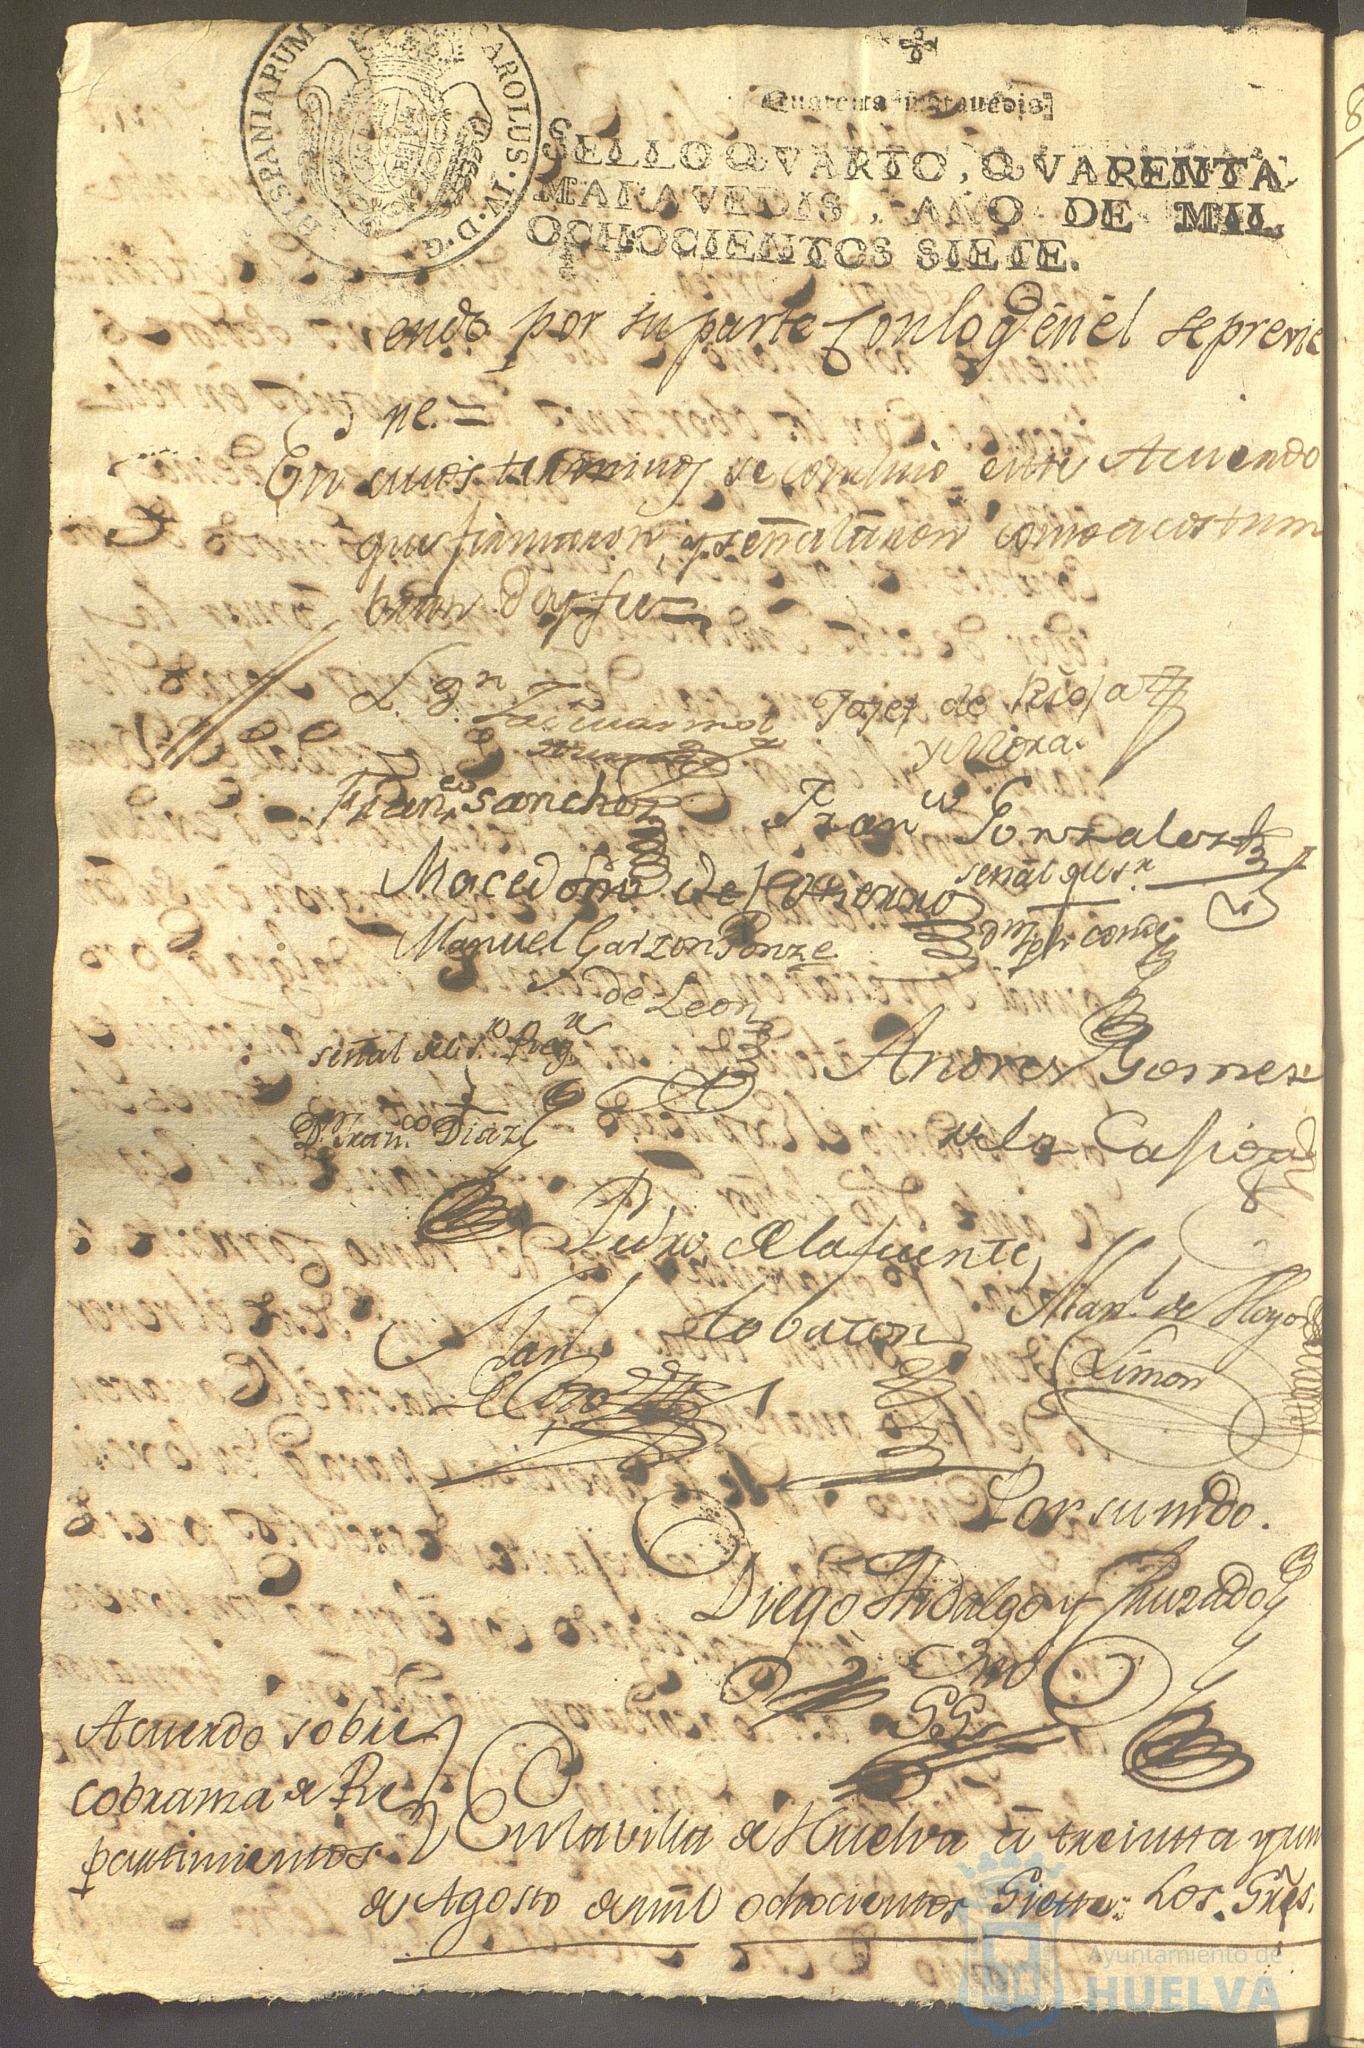 HISPANIARUM
CAROLUS · IV · D · G ·
Quarenta maravedis.
SELLO QVARTO, QVARENTA
MARAVEDIS, AÑO DE MIL
OCHOCIENTOS SIETE.
endo por su parte con lo q̃ en el se previe
ne =
En cuios terminos se concluio este Acuerdo
que firmaron, y señalaron como acostum
bran Doy fee =
Joseƒ de Rioja
y Mora.
Fran.co Sanchez
Fran.co Gonzalez
Macedonio de
señal del s.r
Manuel Garzon Ponze
de Leon
Conde
señal del s.r Reg.r
Andres Gomez
D.n Fran.co Diaz
de la
Pedro de la fuente
Man.l de Hoyos
Limon
Juan
tobacon
Por su mdo.
Diego Hidalgo y Cruzado
Acuerdo sobre
cobranza de Re
partimientos
En la villa de Huelva á treinta y un
de Agosto de mil ochocientos Siette: Los. Sres.
Ayuntamiento de
HUELVA